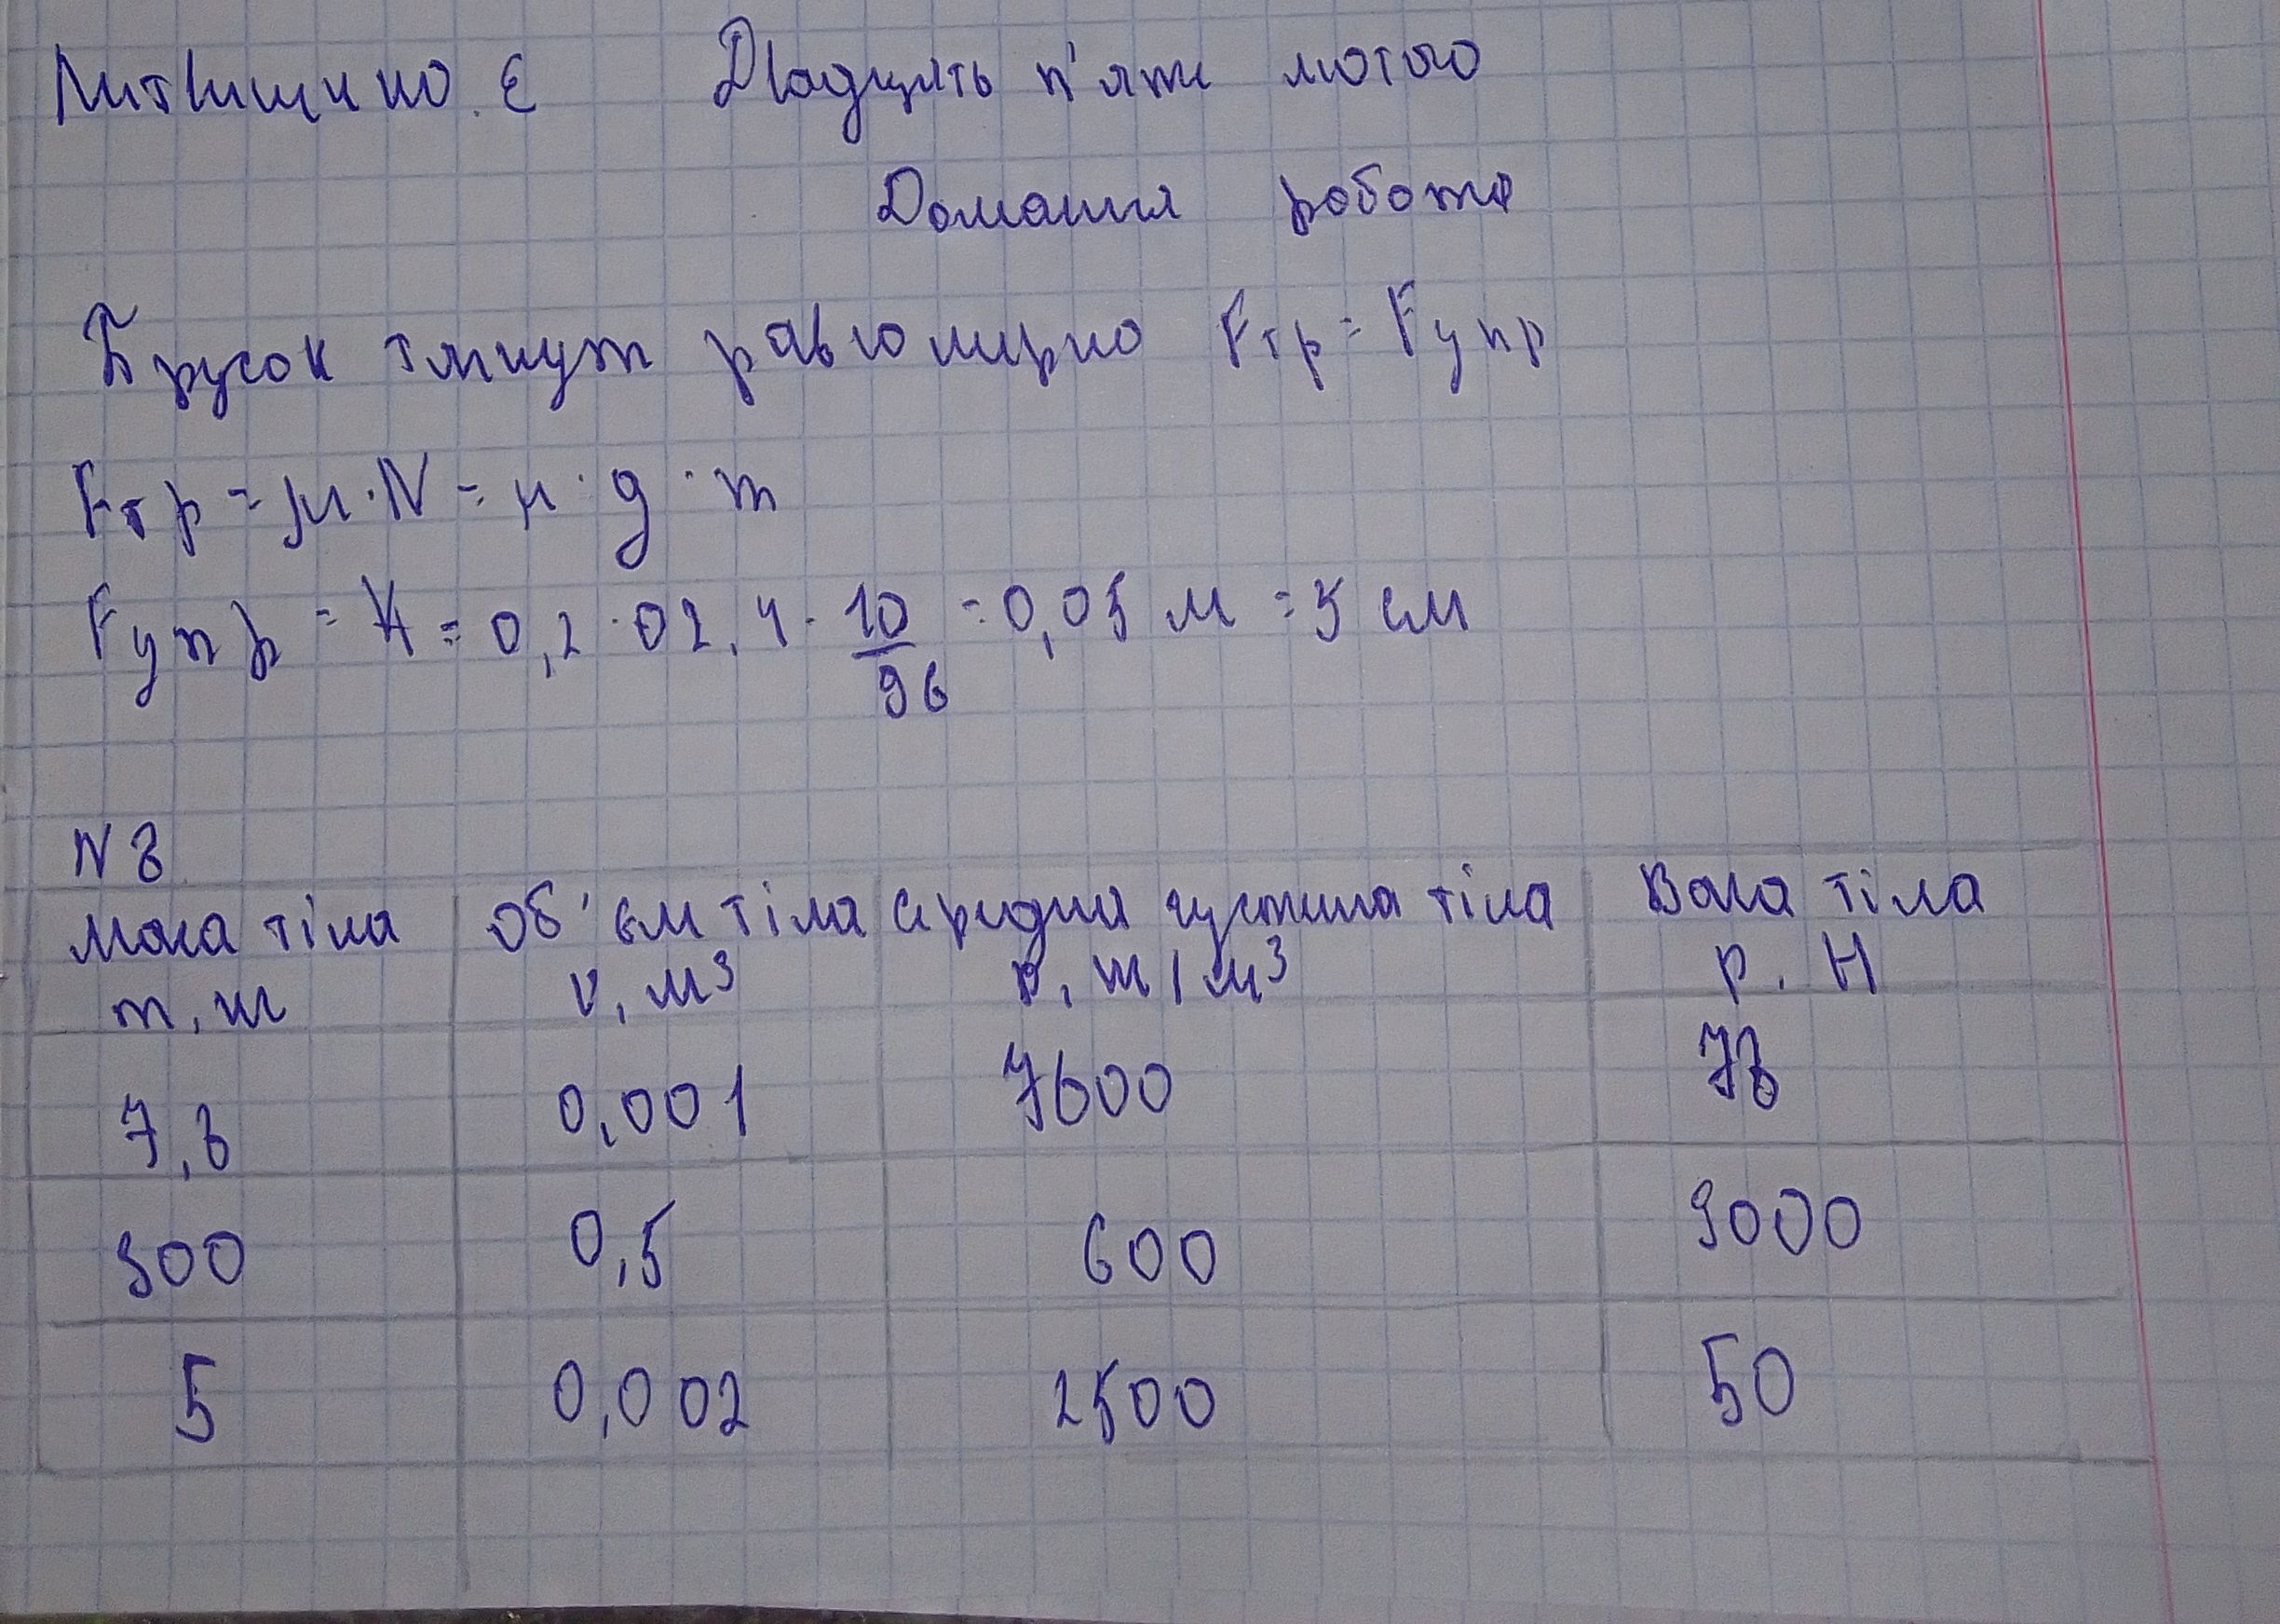 Литвищенко. Є Двадцять п'яте лютого
Домашня робота
Брусок тянут равномерно Fтр = Fупр
Fтр = μ · N = μ · g · m
Fупр = = 0,2 · 02,4 · 10/96 = 0,05 м = 5 см
N 8
Маса тіла Об'єм тіла Середня густина тіла Вага тіла
m, кг V, м³ ρ, кг/м³ P, Н
7,8 0,001 7600 78
900 0,5 600 9000
5 0,002 2500 50